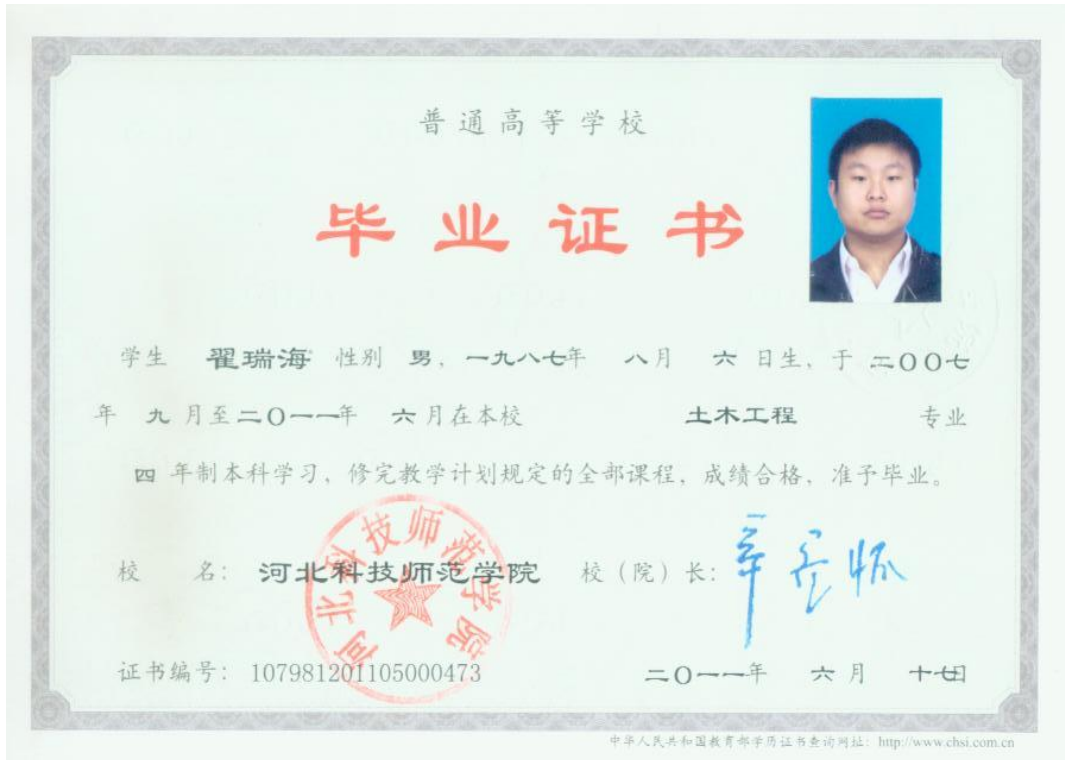 普通高等学校
毕业证书
学生 翟瑞海 性别 男，一九八七年 八月 六日生，于二〇〇七
年 九月至二〇一一年 六月在本校 土木工程 专业
四年制本科学习，修完教学计划规定的全部课程，成绩合格，准予毕业。
校 名：河北科技师范学院 校（院）长：
河北科技师范学院
证书编号：107981201105000473 二〇一一年 六月 十七日
中华人民共和国教育部学历证书查询网址：http://www.chsi.com.cn